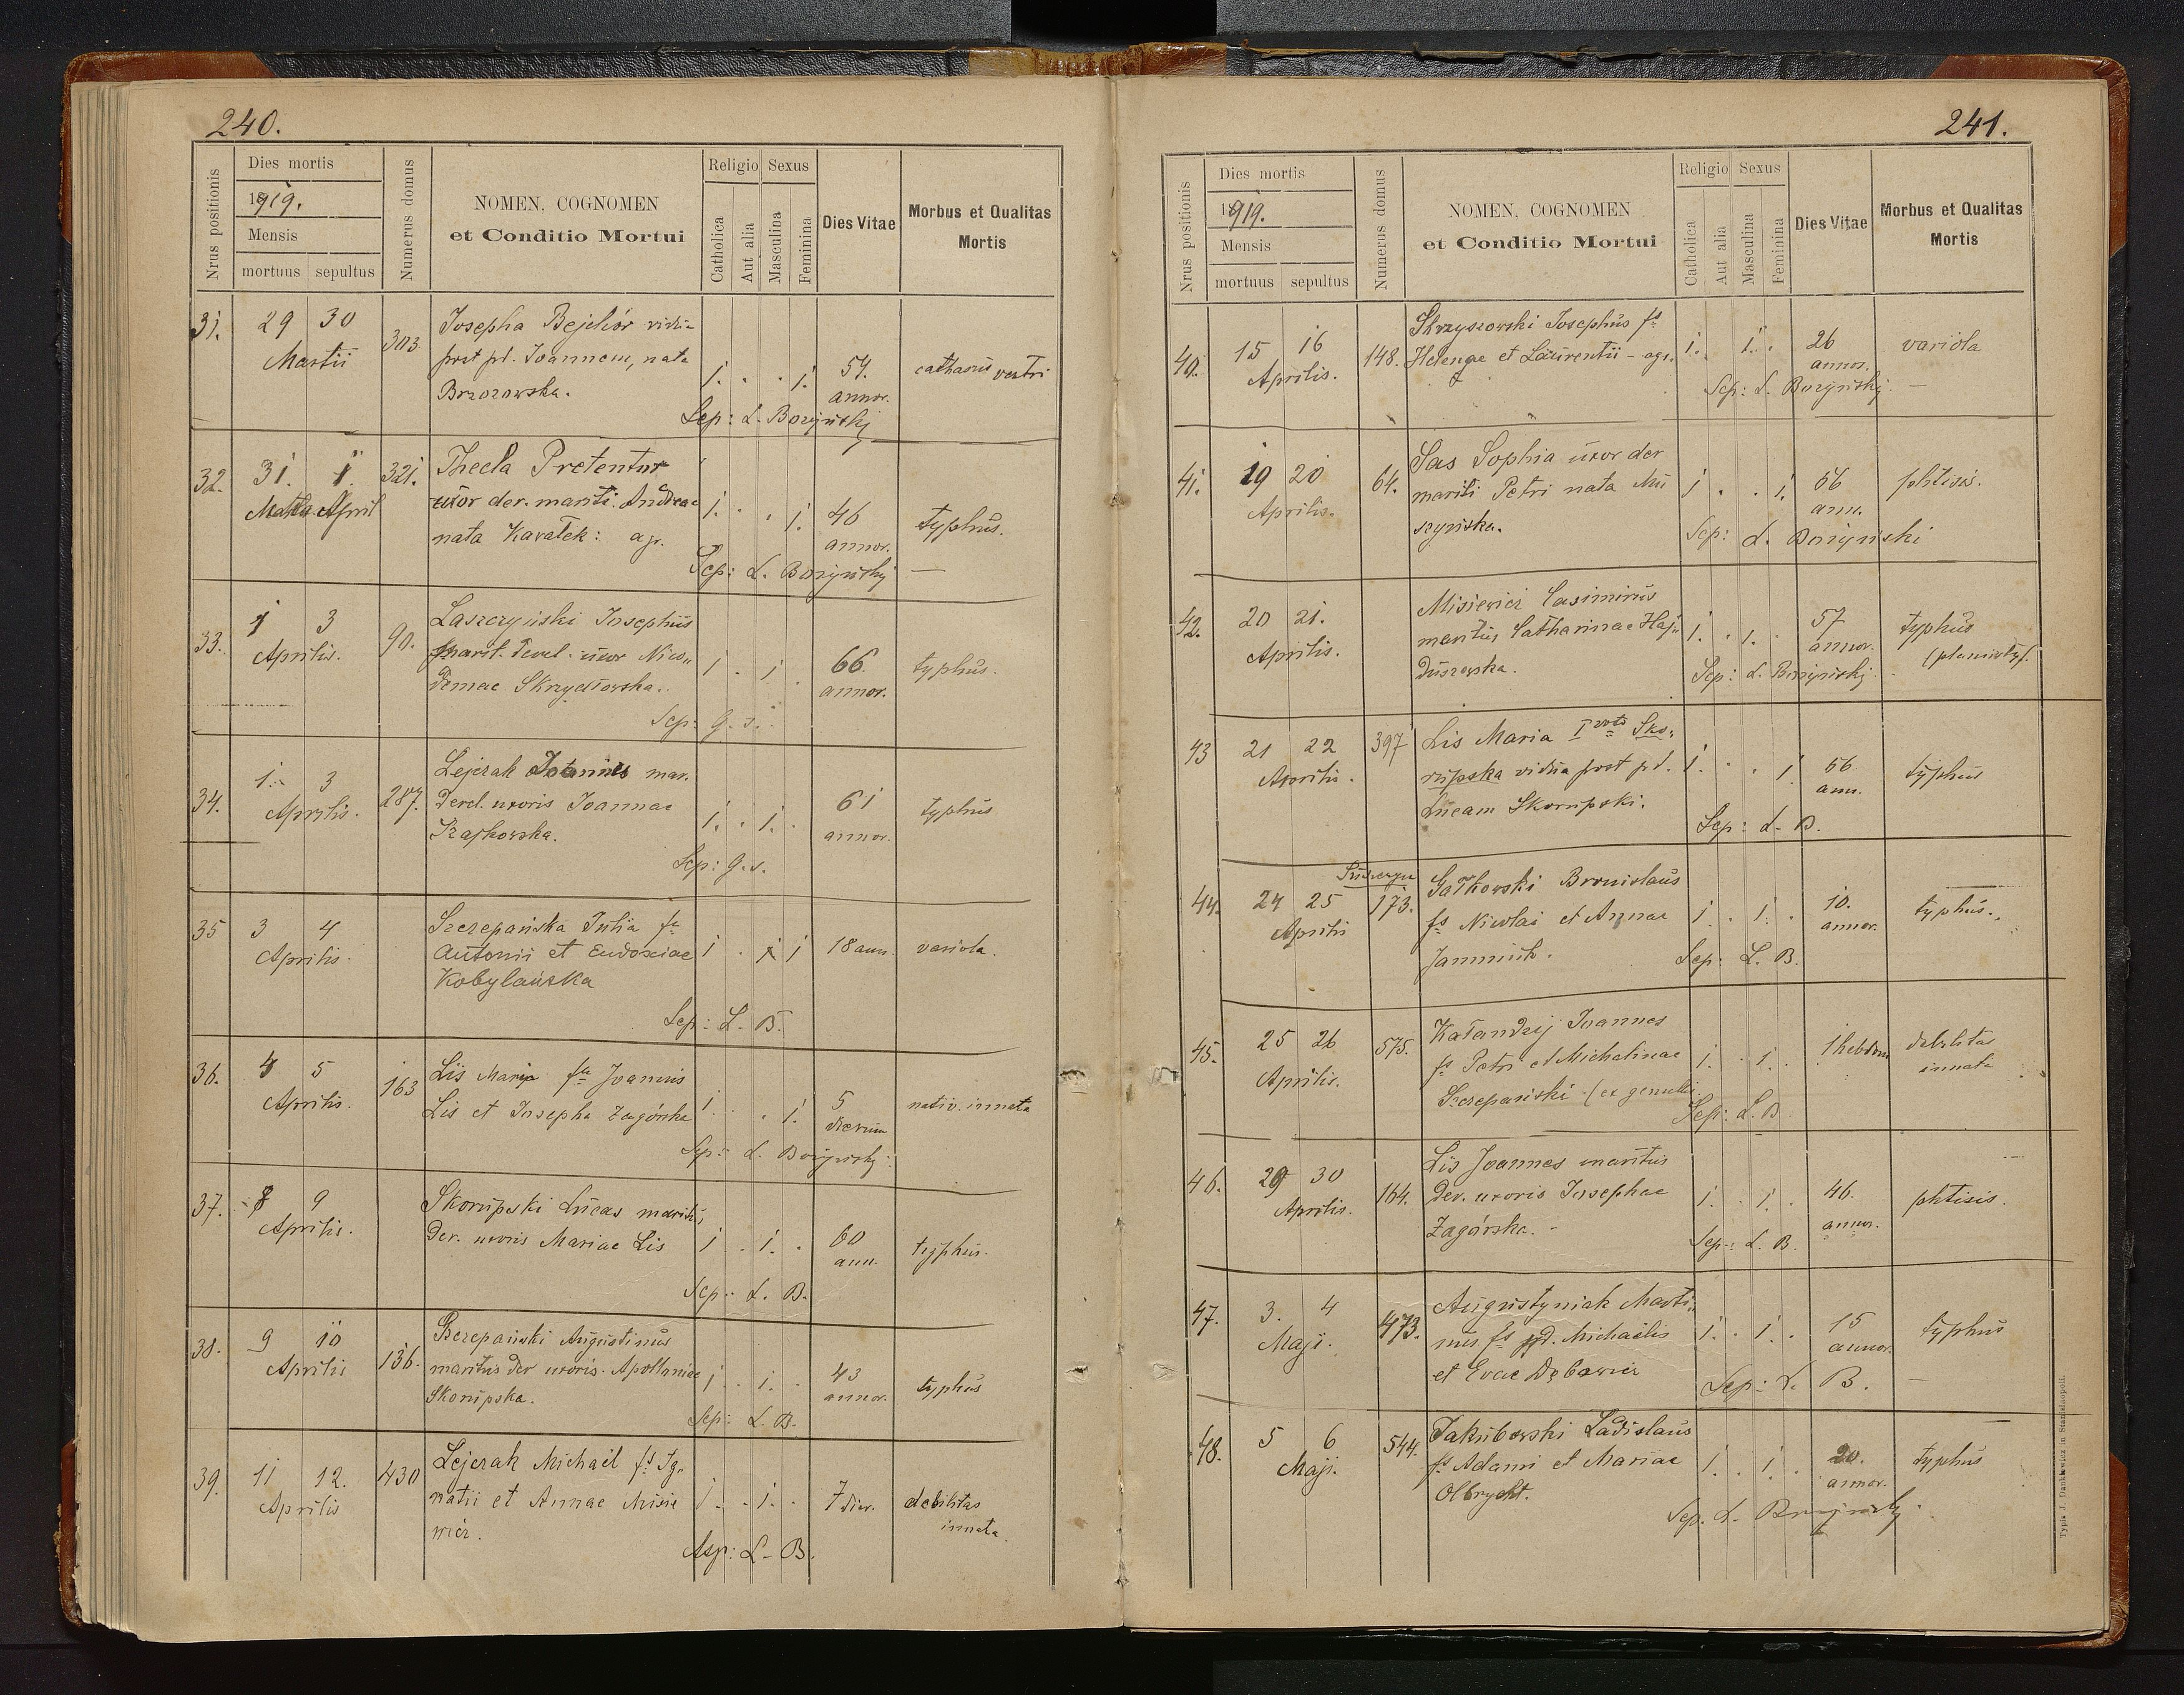 240.
Nrus positionis
Dies mortis
1919.
Mensis
mortuus sepultus
Numerus domus
NOMEN, COGNOMEN
et Conditio Mortui
Religio Sexus
Catholica
Aut alia
Masculina
Feminina
Dies Vitae
Morbus et Qualitas
Mortis
31. 29 30 Martii 303
Josepha Bejchór
post pd. Joannem, nata
Brzozowska.
1. . . 1. 54. annor. vestri
Sep: L. Bożyński
32. 31. 1. April 321.
Thecla Pretentur
uxor der. mariti: Andreae
nata Kavatek: agr.
1. . . 1. 46 annor. typhus.
Sep: L. Bożyński —
33. 1 3 Aprilis. 90.
Laszczyński Josephus
uxor Nico„
demae Skrzydłowska.
1 . 1 . 66. annor. typhus.
Sep: G. s.
34. 1. 3 Aprilis. 287.
Lejczak Joannes mar.
derel. uxoris Joannae
Szajkowska.
1. . 1. . 61 annor. typhus
Sep: G. s.
35 3 4 Aprilis.
Szczepańska Julia fa
Antonii et Eudoxiae
Kobylańska
1 . 1 18 ann. variola.
Sep: L. B.
36. 4 5 Aprilis. 163
Lis Maria fa Joannis
Lis et Josepha Zagórska
1. . . 1. 5 dierum nativ. innata
Sep: L. Bożyński
37. 8 9 Aprilis.
Skorupski Lucas maritus
der. uxoris Mariae Lis
1 . 1. . 60 ann. typhus.
Sep: L. B.
38. 9 10 Aprilis 136.
Szczepański Augustinus
maritus der uxoris Apolloniae
Skorupska.
1 . 1. . 43 annor. typhus
Sep: L. B.
39. 11 12. Aprilis 430
Lejczak Michael fs Ig„
natii et Annae Misie
wicz.
1. . 1. . 7 dier. debilitas
innata
Sep: L. B.
241.
Nrus positionis
Dies mortis
1919.
Mensis
mortuus sepultus
Numerus domus
NOMEN, COGNOMEN
et Conditio Mortui
Religio Sexus
Catholica
Aut alia
Masculina
Feminina
Dies Vitae
Morbus et Qualitas
Mortis
40. 15 16 Aprilis. 148.
Skrzyszowski Josephus fs
Helenae et Laurentii - agr.
1. . 1. . 26 annor. variola
Sep: L. Bożyński —
41. 19 20 Aprilis. 64.
Sas Sophia uxor der
mariti Petri nata Mu
szyńska.
1 . . 1. 56 ann. phtisis.
Sep: L. Bożyński
42. 20 21. Aprilis.
Misiewicz Casimirus
maritus Catharinae Haj„
duszewska.
1. . 1. . 57 annor. typhus
Sep: L. Bożyński
43 21 22 Aprilis. 397
Lis Maria I voto Sko„
rupska vidua post pd.
Lucam Skorupski.
1. . . 1 56 ann. typhus
Sep: L. B.
44. 24 25 Aprilis 173.
Gałkowski Bronislaus
fs Nicolai et Annae
1 . 1. . 10. annor. typhus.
Sep: L. B.
45. 25 26 Aprilis. 575.
Kałandzij Joannes
fs Petri et Michalinae
Szczepański (ex gemellis
1. . 1. . 1 hebdom debilitas
innata
Sep: L. B
46. 29 30 Aprilis. 164.
Lis Joannes maritus
der. uxoris Josephae
Zagórska. -
1. . 1. . 46. annor. phtisis.
Sep: L. B.
47. 3. 4 Maji. 473.
Augustyniak Marti„
nus fs pd. Michaelis
et Evae Dębowicz
1. . 1. . 15 annor. typhus
Sep: L. B. —
48. 5 6 Maji. 544.
Jakubowski Ladislaus
fs Adami et Mariae
Olbrycht.
1. . 1. . 20. annor. typhus
Sep. L. Bożyński
Typis J. Dankiewicz in Stanislaopoli.